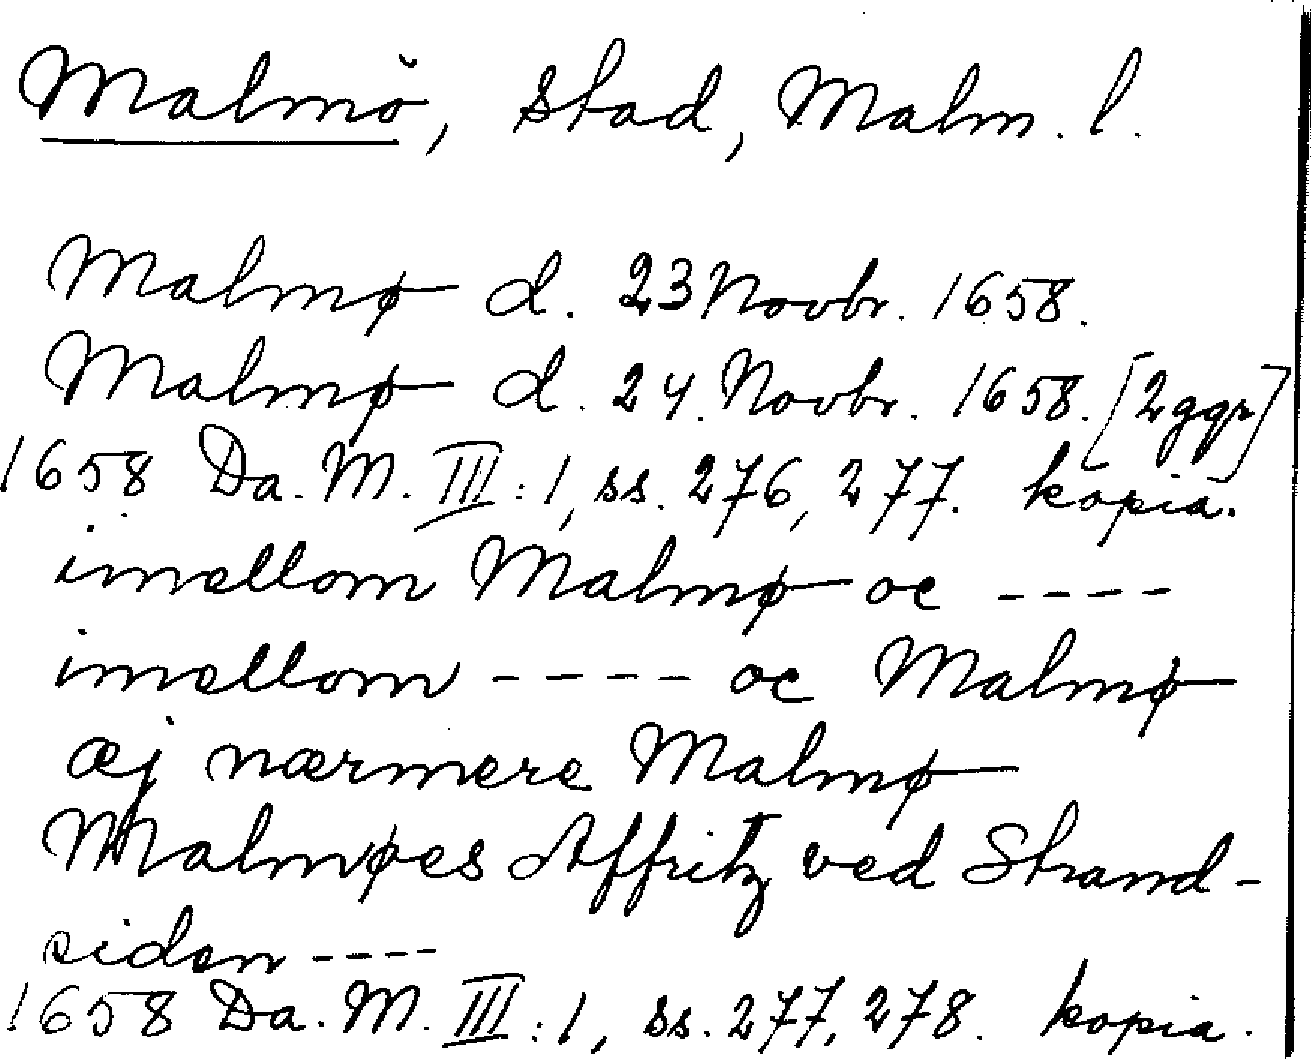 Malmö, stad, Malm. l.
Malmø d. 23 Novbr. 1658.
Malmø d. 24. Novbr. 1658. [2 ggr]
1658 Da. M. III:1, ss. 276, 277. kopia.
imellom Malmø oc ----
imellom ---- oc Malmø
æj nærmere Malmø
Malmøes Affritz ved Strand-
siden ----
1658 Da. M. III:1, ss. 277, 278. kopia.